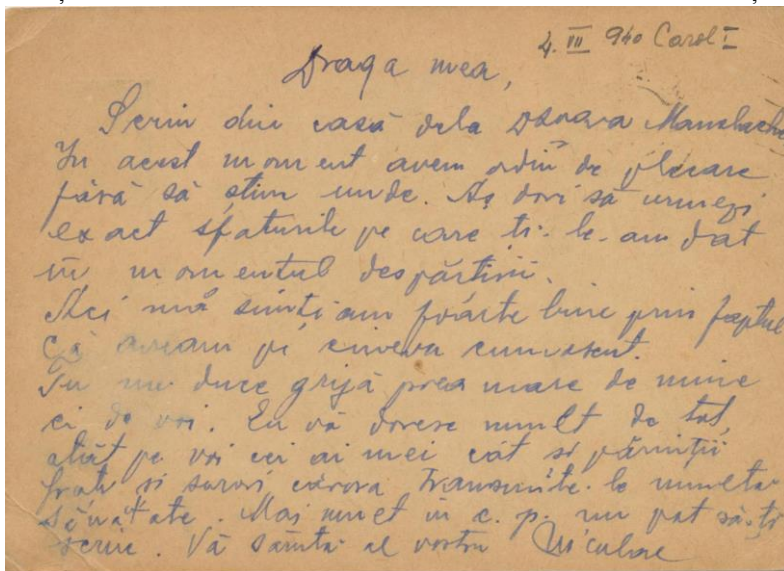 4. VII 940 Carol I
Draga mea,
Scriu din casă dela Dsoara
In acest moment avem ordin de plecare
fără să știm unde. Aș dori să urmezi
exact sfaturile pe care ti-le-am dat
in momentul despărtirii.
Aci mă simtiam foarte bine prin faptul
că aveam pe cineva cunuscut.
Tu nu duce grijă prea mare de mine
ci de voi. Eu vă doresc mult de tot,
atât pe voi cei ai mei cât si părinții
frati si surori cărora transmite-le multa
sănătate. Mai mult in c. p. nu pot să-ți
scriu. Vă sărută al vostru Niculae